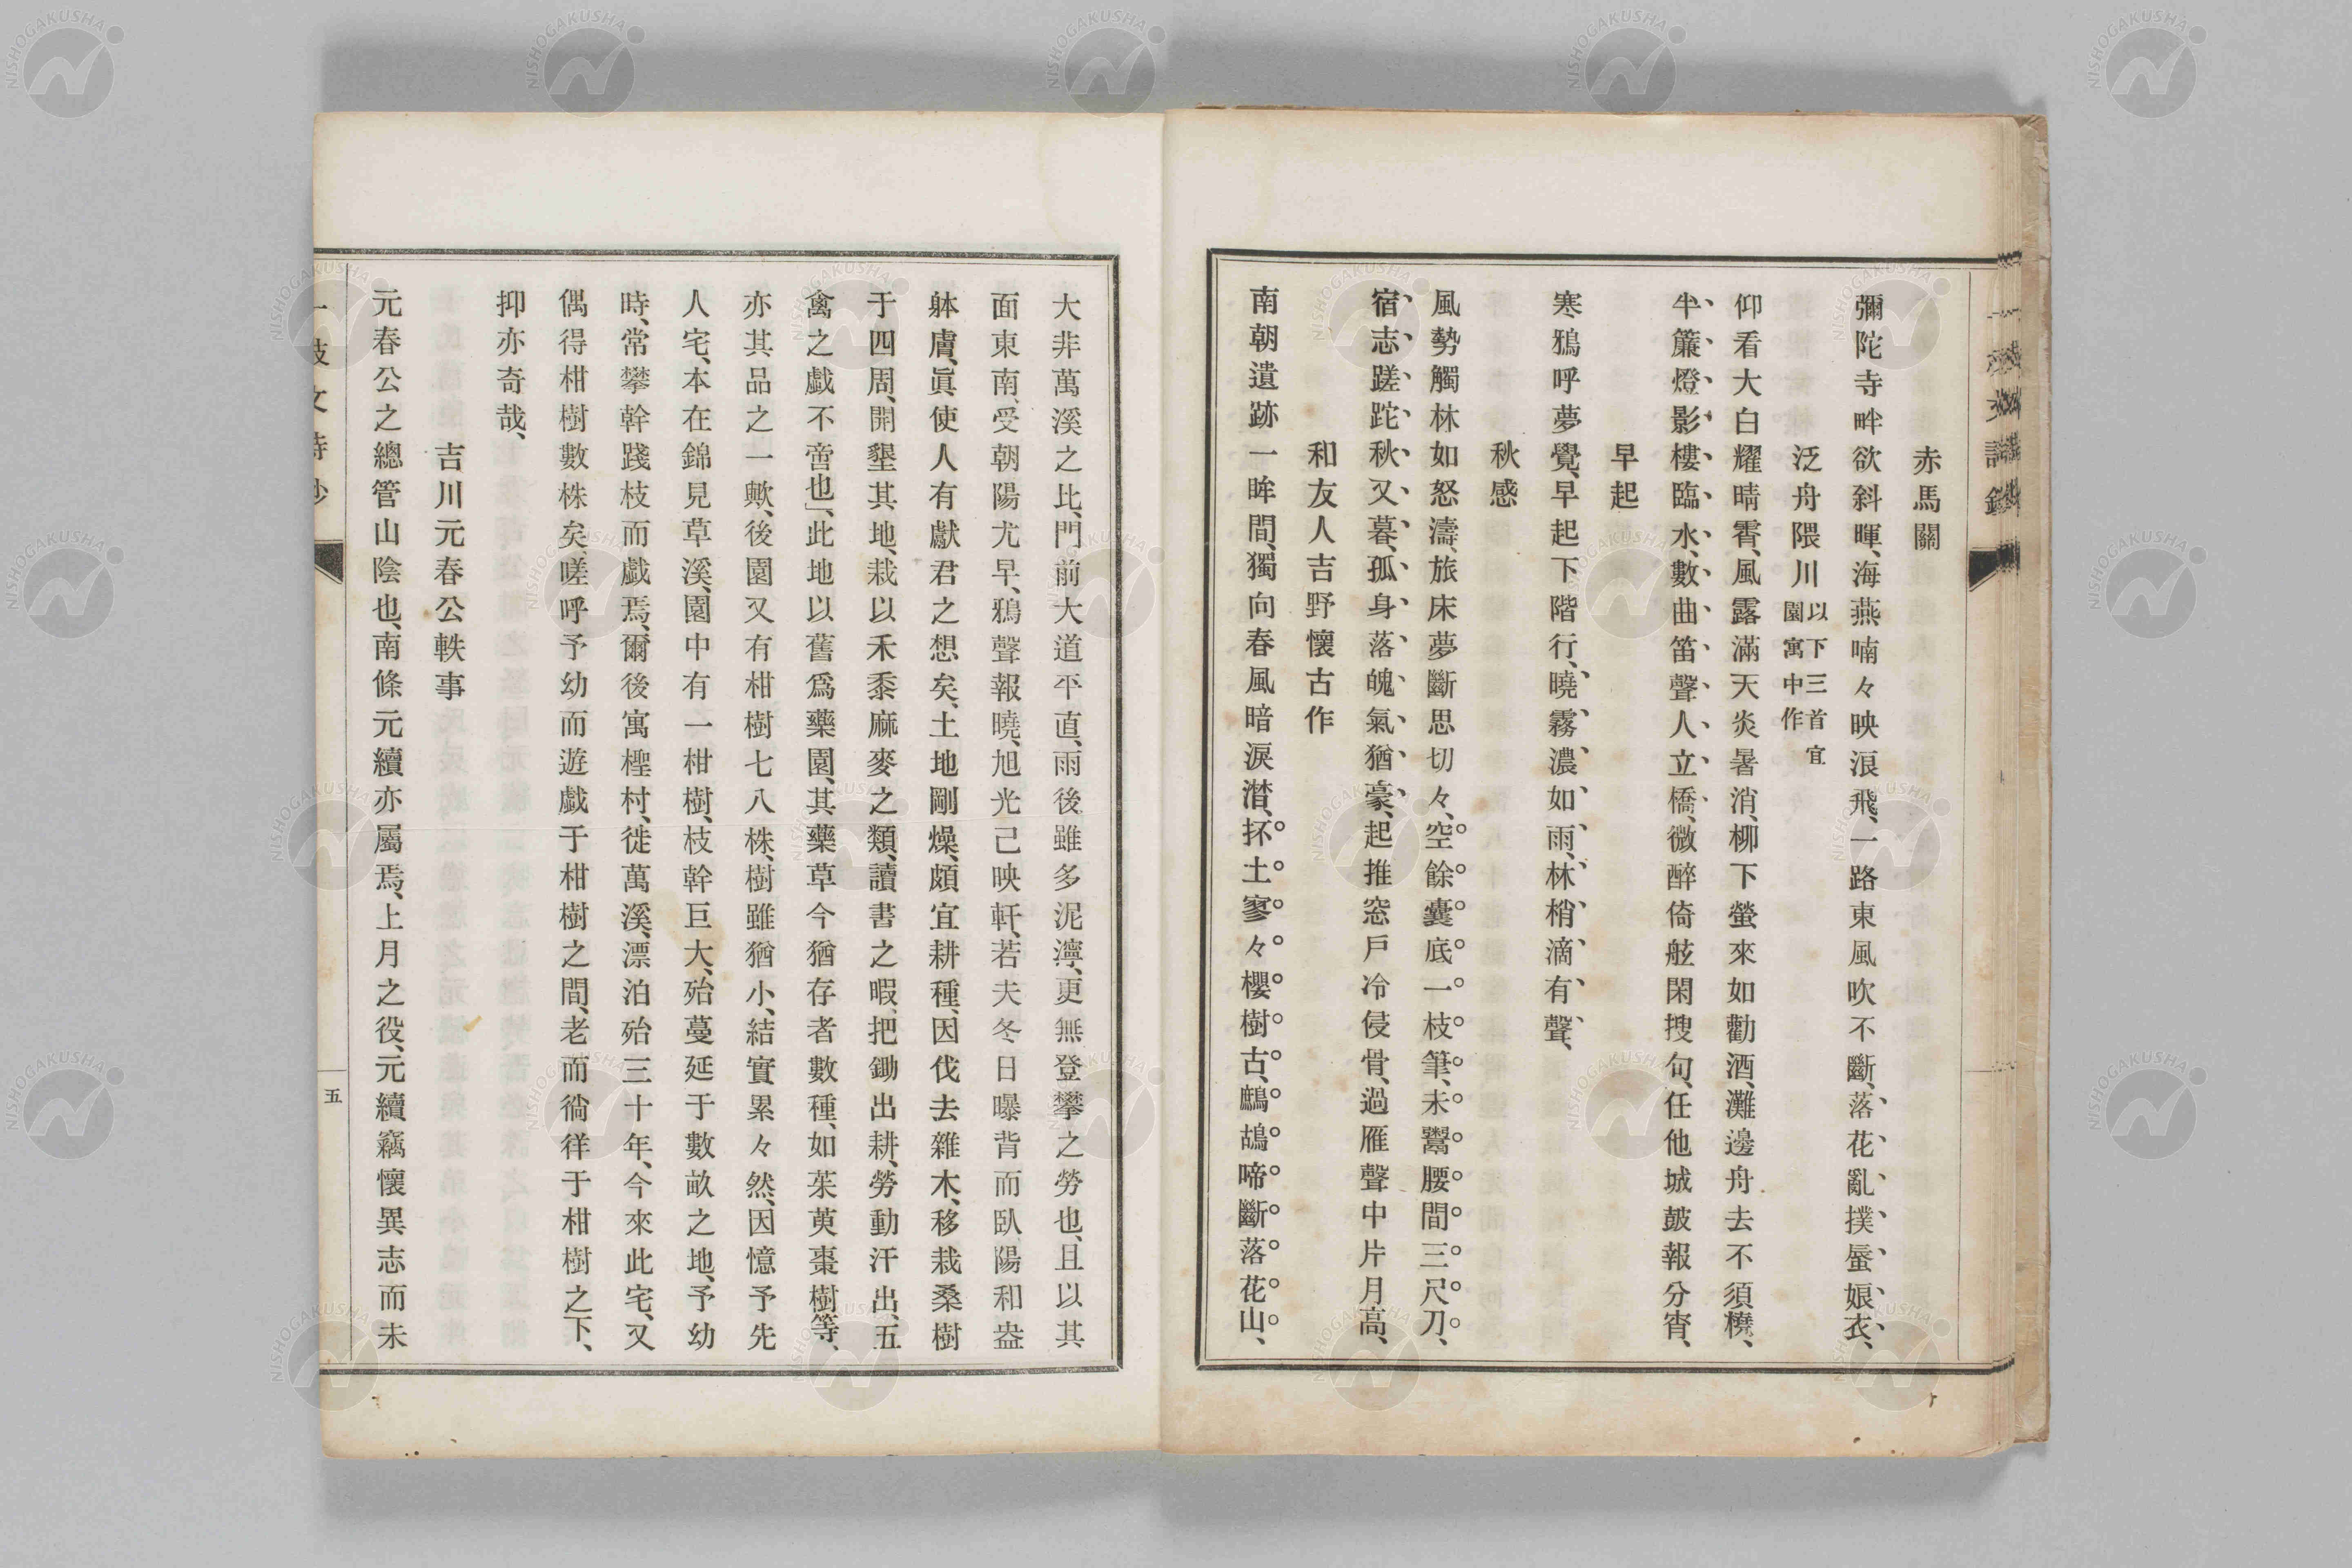 赤馬關
彌陀寺畔欲斜暉、海燕喃々映浪飛、一路東風吹不斷、落花亂撲蜑娘衣、
泛舟隈川 以下三首宜園寓中作
仰看大白耀晴霄、風露滿天炎暑消、柳下螢來如勸酒、灘邊舟去不須橈、
半簾燈影樓臨水、數曲笛聲人立橋、微醉倚舷閑搜句、任他城皷報分宵、
早起
寒鴉呼夢覺、早起下階行、曉霧濃如雨、林梢滴有聲、
秋感
風勢觸林如怒濤、旅床夢斷思切々、空餘囊底一枝筆、未鬻腰間三尺刀、
宿志蹉跎秋又暮、孤身落魄氣猶豪、起推窓戶冷侵骨、過雁聲中片月高、
和友人吉野懷古作
南朝遺跡一眸間、獨向春風暗淚潸、抔土寥々櫻樹古、鷓鴣啼斷落花山、
大非萬溪之比、門前大道平直、雨後雖多泥濘、更無登攀之勞也、且以其
面東南、受朝陽尤早、鴉聲報曉、旭光己映軒、若夫冬日曝背而臥、陽和盎
躰膚、眞使人有獻君之想矣、土地剛燥、頗宜耕種、因伐去雜木、移栽桑樹
于四周、開墾其地、栽以禾黍麻麥之類、讀書之暇、把鋤出耕、勞動汗出、五
禽之戯不啻也」、此地以舊爲藥園、其藥草今猶存者數種、如茱萸棗樹等、
亦其品之一歟、後園又有柑樹七八株、樹雖猶小、結實累々然、因憶予先
人宅、本在錦見草溪、園中有一柑樹、枝幹巨大、殆蔓延于數畝之地、予幼
時、常攀幹踐枝而戯焉、爾後寓檉村、徙萬溪、漂泊殆三十年、今來此宅、又
偶得柑樹數株矣、嗟呼予幼而遊戯于柑樹之間、老而徜徉于柑樹之下、
抑亦奇哉、
吉川元春公軼事
元春公之總管山陰也、南條元續亦屬焉、上月之役、元續竊懷異志而未
五